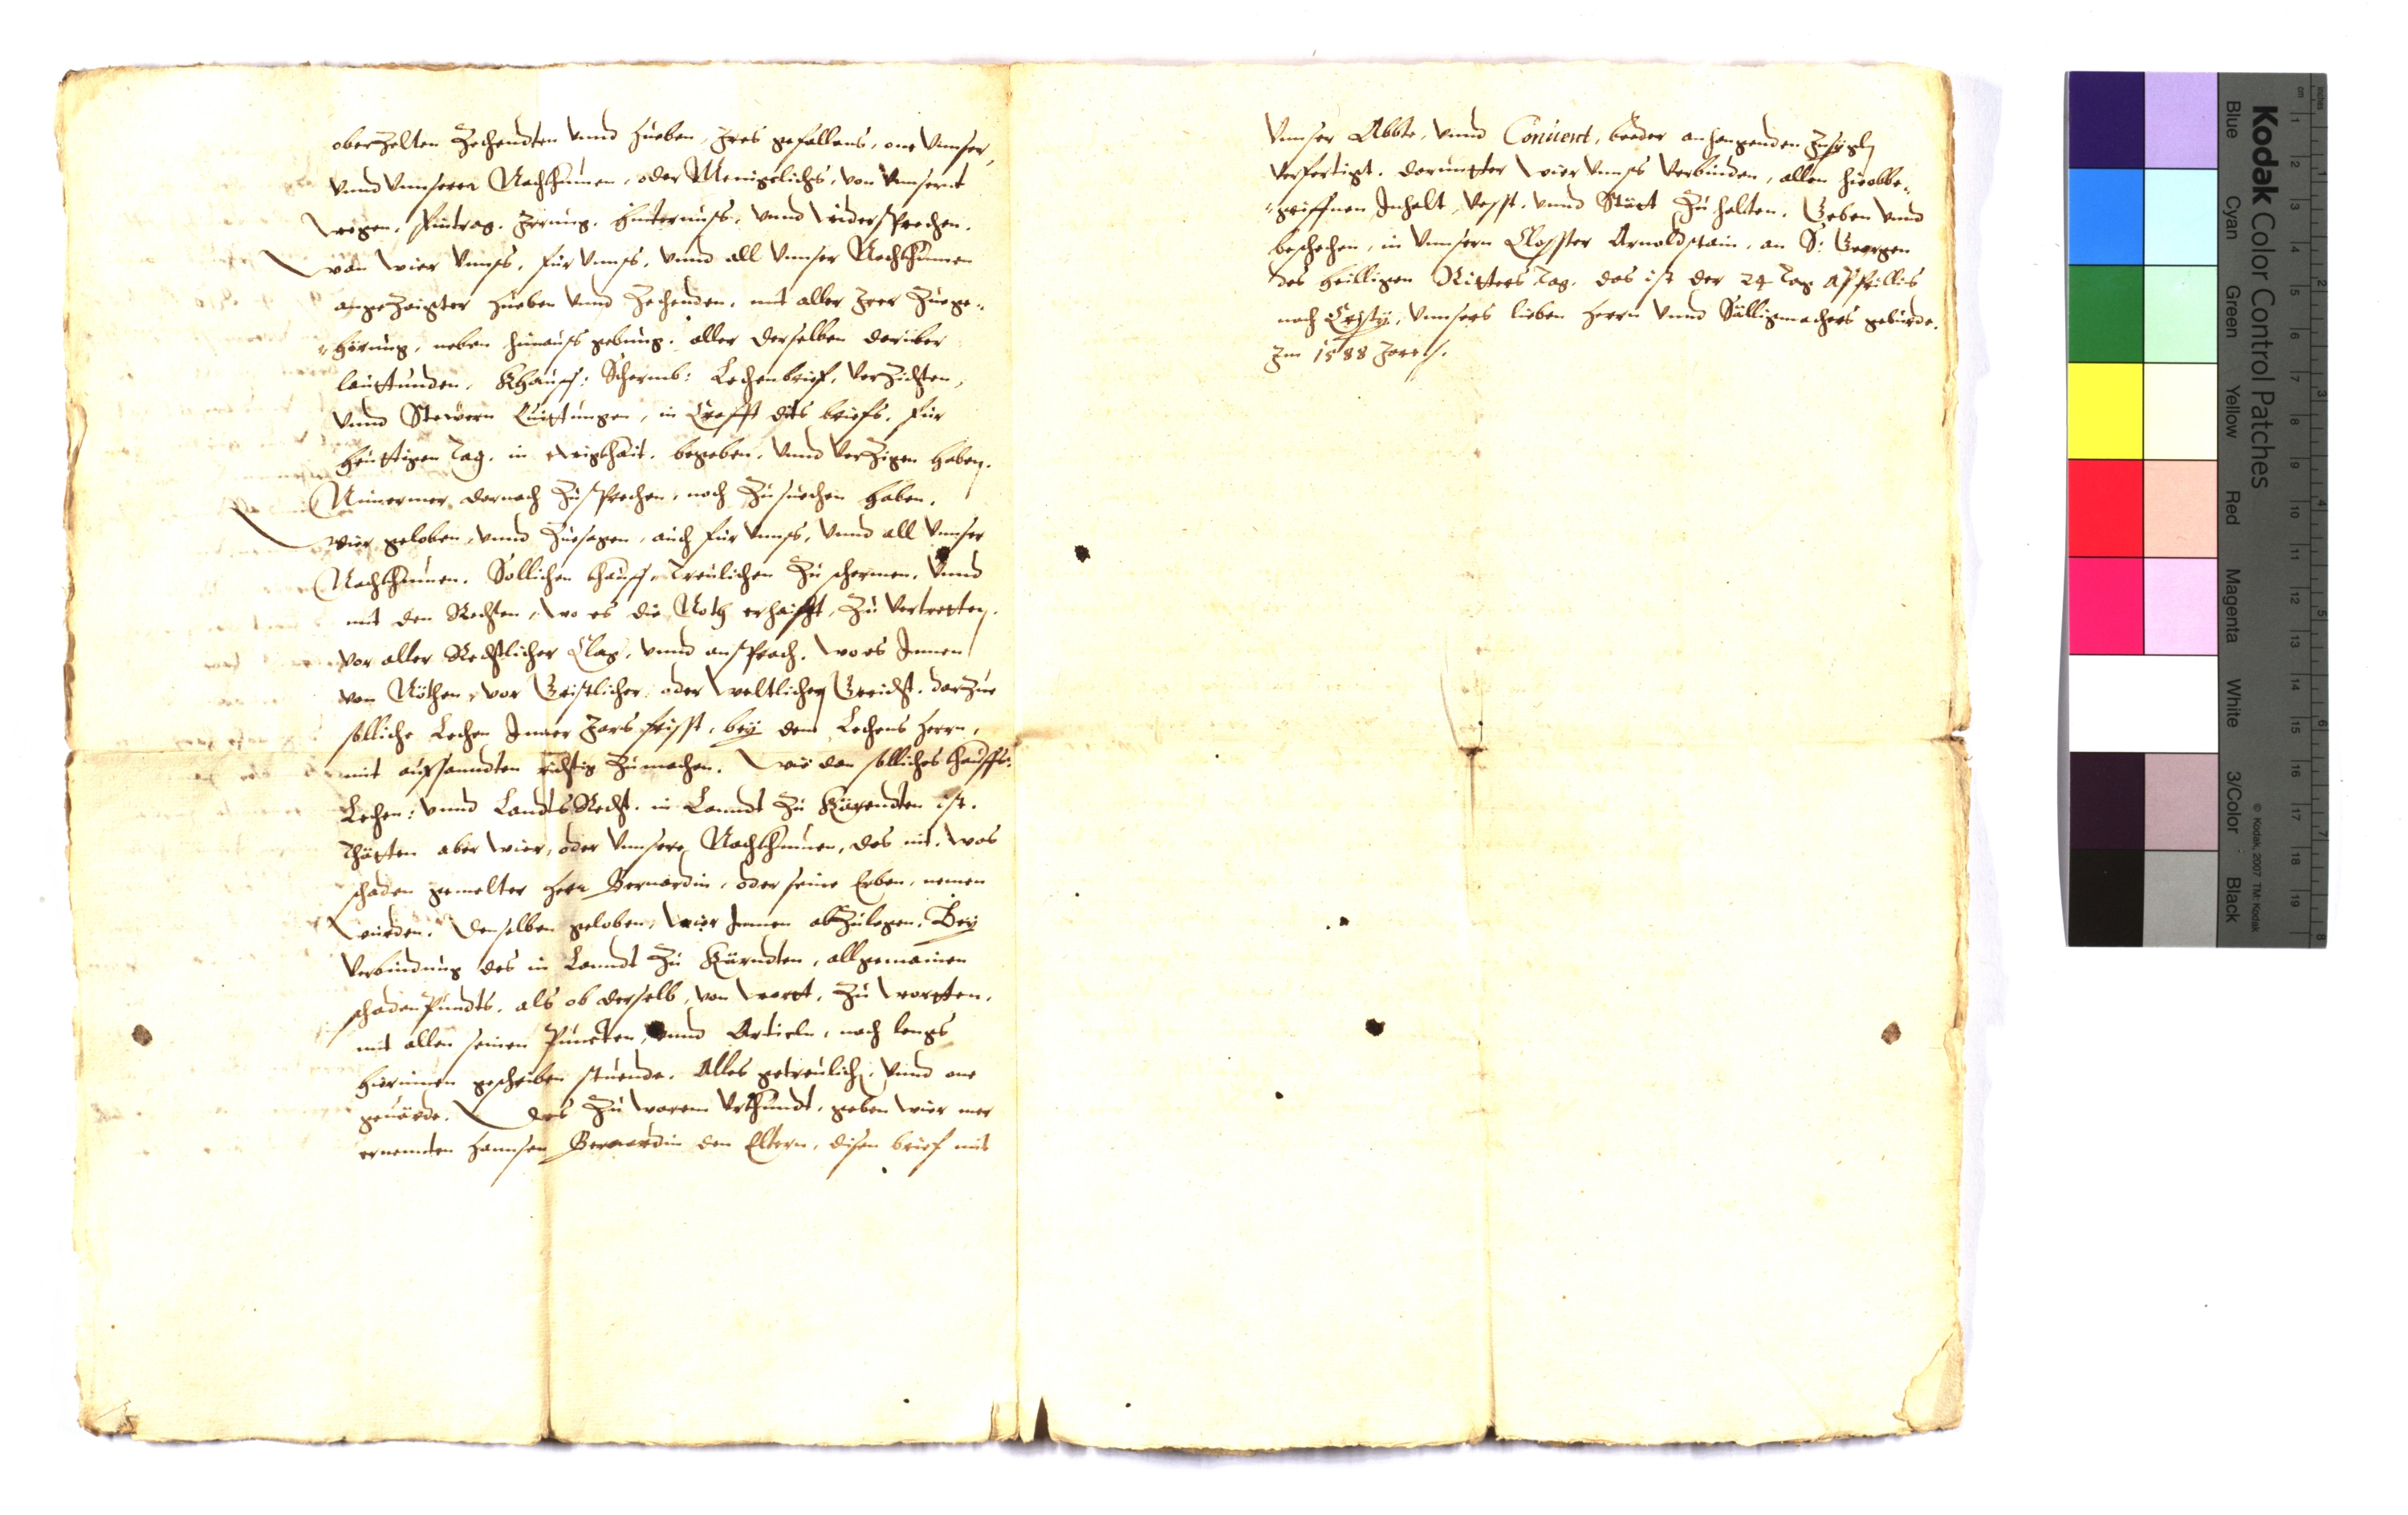 oberzelten Zechendten vnnd Hueben, Jres gefallens, one vnnser,
vnnd vnnserer Nachkhumen, oder Menigclichs, von vnnsernt
wegen, Eintrag, Jrrung, Hinternuss, vnnd widersprechen.
wan wier vnnss, für vnnss, vnnd all vnnser Nachkhumen
angezaigter Hueben vnnd Zechenden, mit aller Jrer Zuege-
hörung, neben hinauss gebung, aller derselben darüber
lauttunden, Khauff: Schermb: Lechenbrief, Verzichten,
vnnd Stewern Quittungen, in Crafft dits briefs, für
heuttigen Tag, in ewigkhait, begeben, vnnd verzigen haben.
Nimermer darnach zu sprechen, noch zu suechen haben.
wier geloben, vnnd zuesagen, auch für vnnss, vnnd all vnnser
Nachkhumen, Sollichen khauff, Treulichen zu schermen, vnnd
mit den Rechten, wo es die Noth erhaischt, zu vertretten.
vor aller Rechtlicher Clag, vnnd ansprach, wo es Jnnen
von Nöthen, vor Geistlicher, oder weltlicher Gericht, darzue
solliche Lechen Jnner Jars frisst, bey dem Lechens Herrn,
mit aufsanndten richtig zumachen. wie dan solliches khauffs:
Lechen: vnnd Landts Recht, in Lanndt zu Kärendten ist.
Thätten aber wier, oder vnnsere Nachkhumen, das nit, was
schaden gemelter Herr Bernardin, oder seine Erben, nemen
wurden, denselben geloben, wier Jnnen abzulegen, Bey
Verbindung des in Lanndt zu Kärndten, allgemainen
schadenpundts, als ob derselb, von wort, zu wortten,
mit allen seinen Puncten, vnnd Articln, nach lengs
hierinnen geschriben stuende. Alles getreulich, vnnd one
geuärde. Des zu warem Vrkhundt, geben wier mer
ernennten Hannsen Bernardin den Eltern, disen brief mit
Vnnser Abbte, vnnd Conuent, beeder anhangenden Jnsigl
verfertigt. Darunter wier vnnss verbinden, allen hieobbe-
griffnen Jnhalt, Vesst, vnnd Stätt zu halten. Geben vnnd
beschechen, in vnnsern Closster Arnoldstain, an S: Georgen
des heilligen Ritters Tag, das ist der 24 Tag Appillis
nach Cristy, vnnsers lieben Herrn vnnd Sälligmachers geburde,
Jm 1588 Jare.